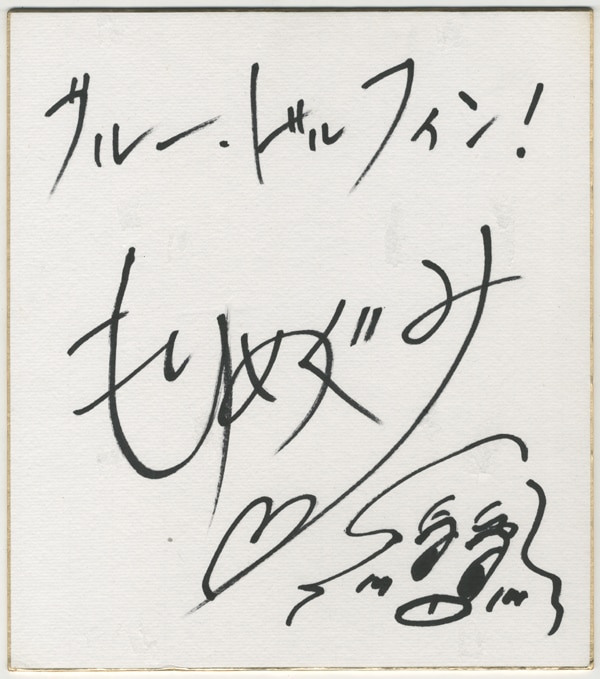 ブルー・ドルフィン!
もりめぐみ